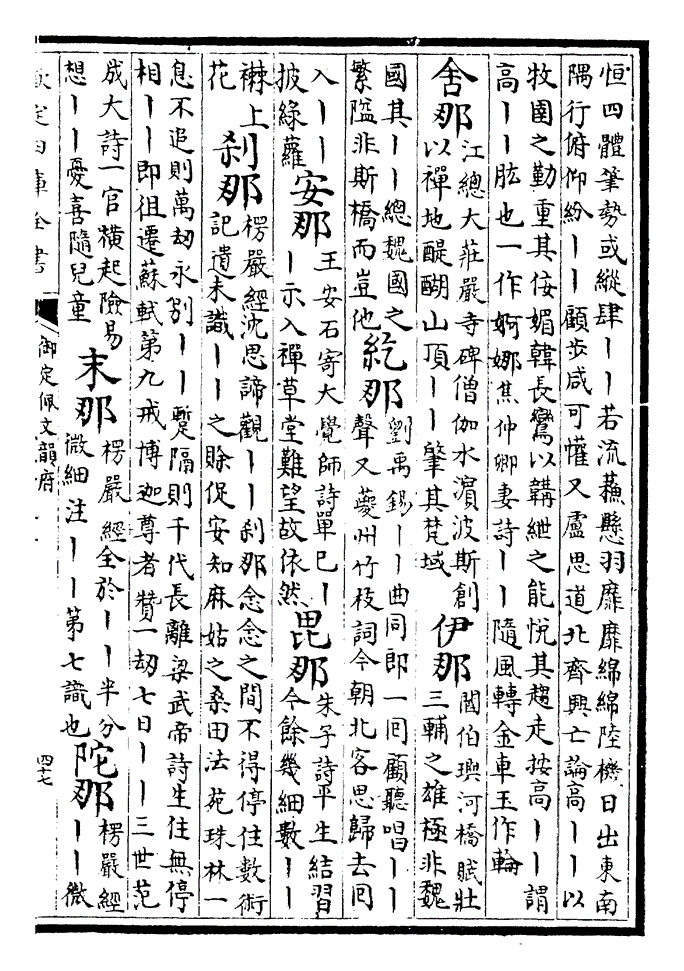 恒四體筆勢或縱肆丨丨若流蘓懸羽靡靡綿綿陸機日出東南
隅行俯仰紛丨丨顧步咸可懽又盧思道北齊興亡論高丨丨以
牧圉之勤重其侫媚韓長鸞以韝紲之能悦其趨走按高丨丨謂
高丨丨肱也一作婀娜焦仲卿妻詩丨丨隨風轉金車玉作輪
舍那江總大莊嚴寺碑僧伽水濵波斯創
以禪地醍醐山頂丨丨肇其梵域伊那閻伯璵河橋賦壯
三輔之雄極非魏
國其丨丨總魏國之
繁隘非斯橋而豈他紇那劉禹錫丨丨曲同郎一囘顧聽唱丨丨
聲又䕫州竹枝詞今朝北客思歸去囘
入丨丨
披緑蘿安那王安石寄大覺師詩單已丨
丨示入禪草堂難望故依然毘那朱子詩平生結習
今餘幾細數丨丨
襟上
花刹那楞嚴經沈思諦觀丨丨刹那念念之間不得停住數術
記遺未識丨丨之賖促安知麻姑之桑田法苑珠林一
息不追則萬劫永别丨丨蹔隔則千代長離梁武帝詩生住無停
相丨丨即徂遷蘇軾第九戒博迦尊者贊一劫七日丨丨三世范
成大詩一官横起險易
想丨丨憂喜隨兒童末那楞嚴經全於丨丨半分
微細注丨丨第七識也陀那楞嚴經
丨丨微
欽定四庫全書
御定佩文韻府
四十七